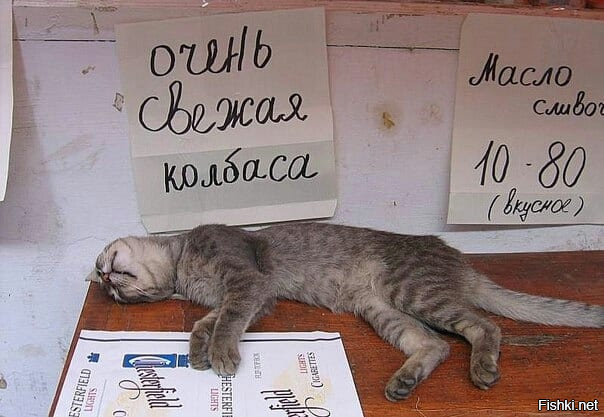 очень
свежая
колбаса
Масло
сливоч
10-80
(вкусное)
CHESTERFIELD
LIGHTS
Chesterfield
CHESTERFIELD
LIGHTS
FLIP TOP BOX
LIGHTS
CIGARETTES
Fishki.net